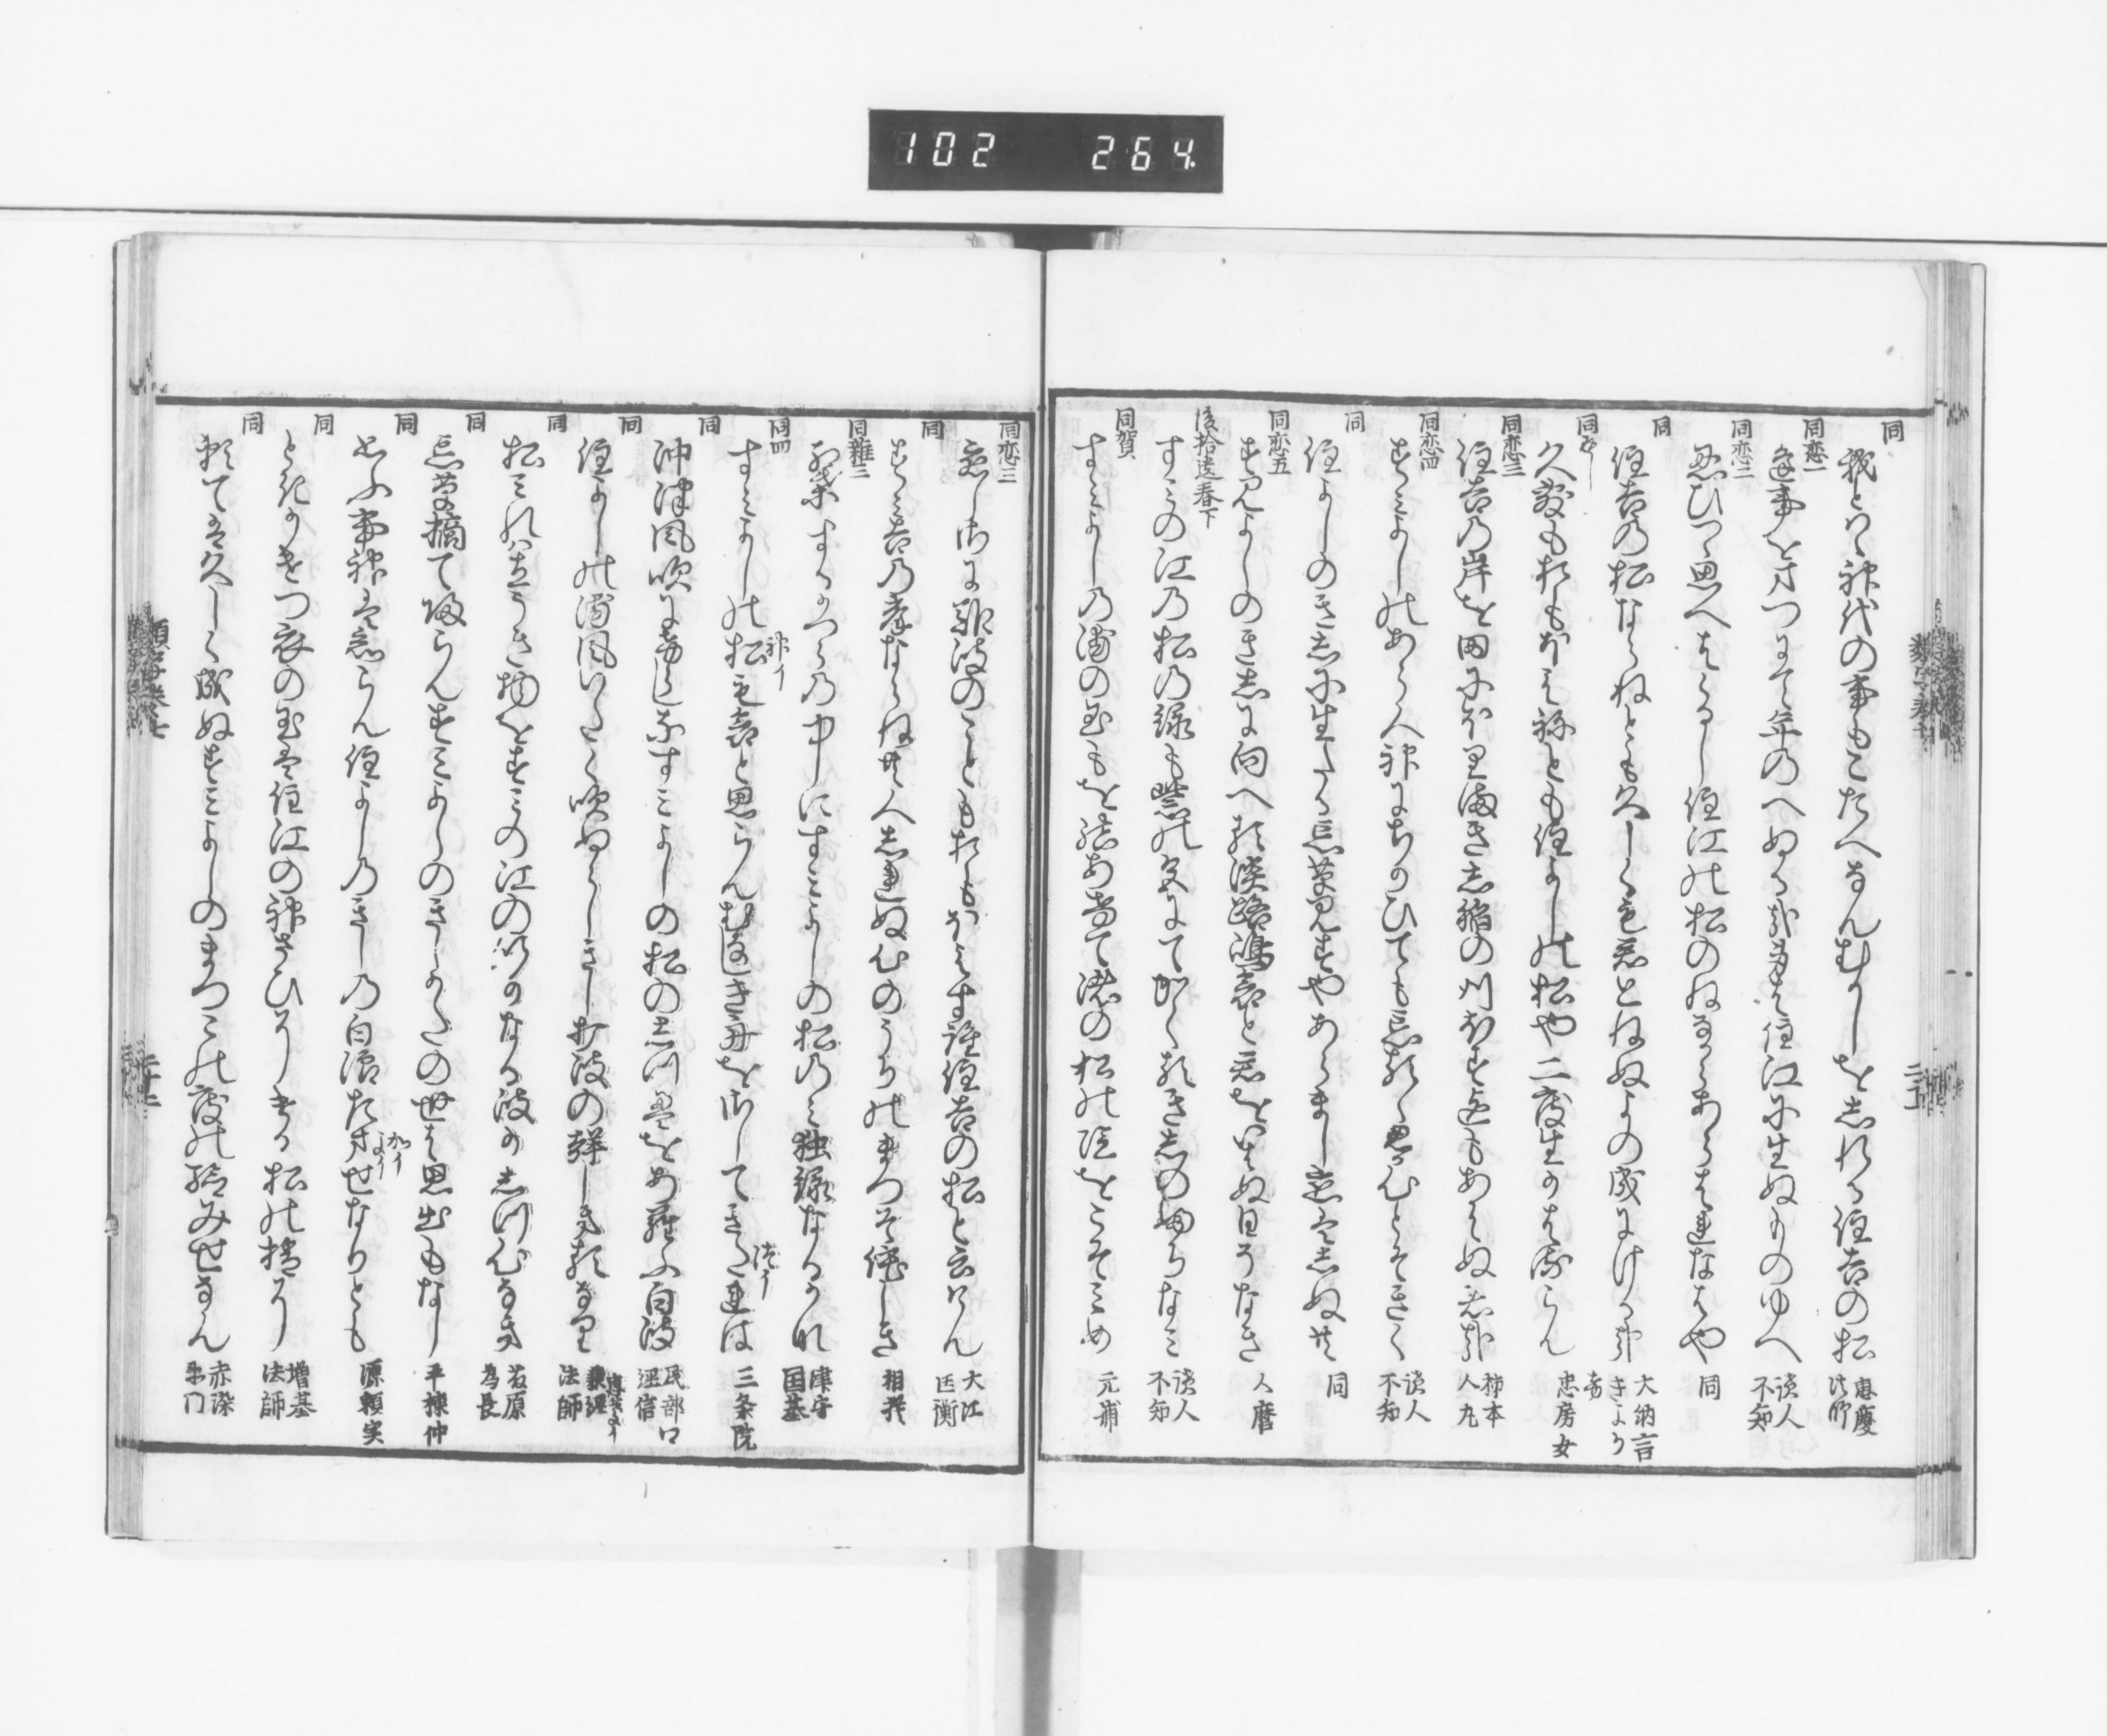 102 264
同
我とはゝ神代の事もこたへなんむかしを志れる住吉の松 恵慶法師
同恋一
逢事をまつにて年のへぬる哉身は住江に生ぬものゆへ 読人不知
同恋二
忍ひつゝ思へはくるし住江の松のねなからあらはれなはや 同
同
住吉の松ならねとも久しくも君とねぬよの成にけるかな 大納言きよかけ
同
久敷もおもほえねとも住よしの松や二度生かはるらん 忠房女
同恋三
住吉の岸を田にほりまきし稲の刈ほす迄もあはぬ君哉 柿本人丸
同恋四
すみよしのあら人神にちかひても忘るゝ君か心とそきく 読人不知
同
住よしのきしに生たる忘草見すやあらまし恋は志ぬとも 同
同恋五
すみよしのきしに向へる淡路嶋哀と君をいはぬ日そなき 人麿
後拾遺春下
すみの江の松の緑も紫の色にてかくるきしの藤なみ 読人不知
同賀
すみよしの浦の玉もを結あけて渚の松の陰をこそみめ 元輔
同恋三
恋しきに難波のこともおもほえす誰住吉の松と云けん 大江匡衡
同
すみ吉の岸ならねとも人しれぬ心のうちのまつそ侘しき 相模
同雑三
すみよしの松のみ独緑なるかな 津守国基
同四
すみよしの松も哀と思らんむなしき舟をさしてきたれは 三条院
同
沖津風吹にけらしなすみよしの松のしつ枝をあらふ白波 民部口経信
同
住よしの浦風いたく吹ぬらしきしうつ波の声しきるなり 兼経法師
同
松みれは立うき物をすみの江のいかなる波かしつ心なき 為長
同
忘草摘て帰らんすみよしのきしかたの世は思出もなし 平棟仲
同
思ふ事神は知らん住よしのきしの白波たよせなりとも 源頼実
同
ときかけつ衣の玉は住江の神さひにける松の梢に 増基法師
同
頼ては久しく成ぬすみよしのまつこの度のしるしみせなん 赤染衛門